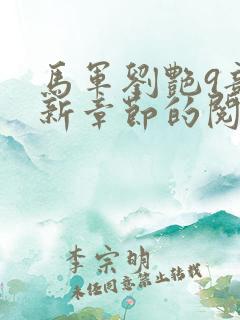 馬軍劉艷9章
新章節的閱
李宗明
未經同意禁止轉載